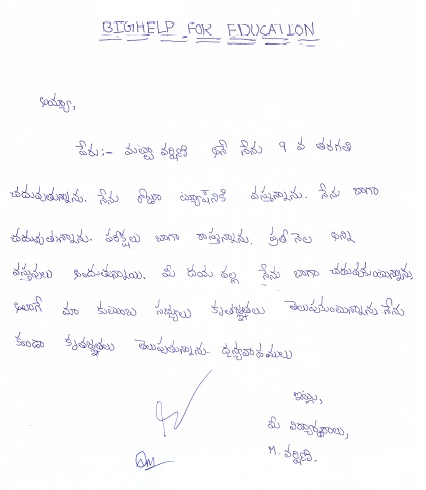 BIGHELP FOR EDUCATION
అయ్యా,
పేరు:- మల్లా వర్షిణి అనే నేను 9 వ తరగతి
చదువుతున్నాను. నేను రోజూ ట్యూషన్‌కి వస్తున్నాను. నేను బాగా
చదువుతున్నాను. పరీక్షలు బాగా రాస్తున్నాను. ప్రతీ నెల అన్ని
వస్తువులు అందుతున్నాయి. మీ దయ వల్ల నేను బాగా చదువుకుంటున్నాను
అలాగే మా కుటుంబ సభ్యులు కృతజ్ఞతలు తెలుపుకుంటున్నాను. నేను
కూడా కృతజ్ఞతలు తెలుపుతున్నాను. ధన్యవాదములు
ఇట్లు,
మీ విద్యార్థురాలు,
M. వర్షిణి.